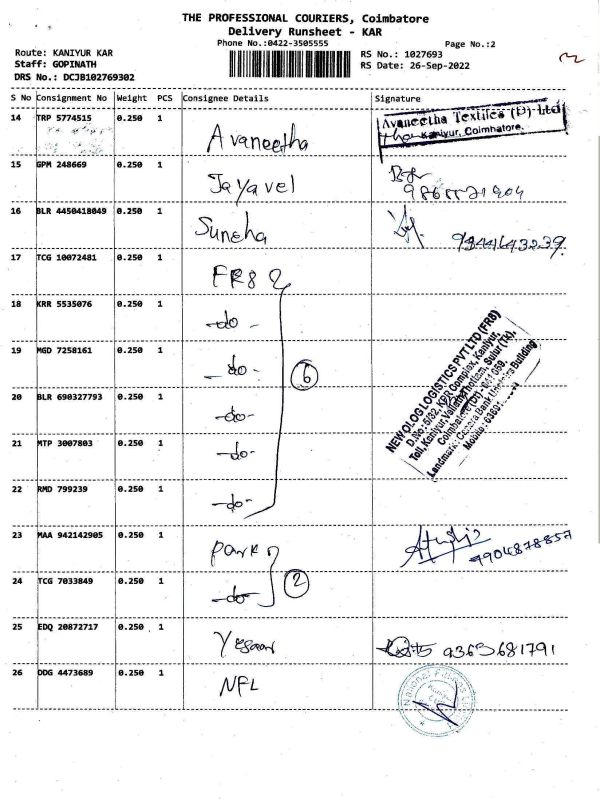 THE PROFESSIONAL COURIERS, Coimbatore
Delivery Runsheet - KAR
Phone No.:0422-3505555
Page No.:2
Route: KANIYUR KAR
Staff: GOPINATH
DRS No.: DCJB102769302
RS No.: 1027693
RS Date: 26-Sep-2022
S No Consignment No Weight PCS Consignee Details Signature
14 TRP 5774515 0.250 1 Avaneetha
Avaneetha Textiles (P) Ltd
Kaniyur, Coimbatore.
15 GPM 248669 0.250 1 Jayavel
16 BLR 4450418049 0.250 1 Suneha 9344643239
17 TCG 10072481 0.250 1 FR8
18 KRR 5535076 0.250 1 -do-
19 MGD 7258161 0.250 1 -do- 6
20 BLR 690327793 0.250 1 -do-
21 MTP 3007803 0.250 1 -do-
22 RMD 799239 0.250 1 -do-
NEWOLOG LOGISTICS PVT LTD (FR8)
D.No: 5/82, KPR Complex, Kaniyur,
Toll, Kaniyur, Sulur (Tk),
Coimbatore (Dt) - 641 659.
Landmark: Canara Bank Building
Mobile:
23 MAA 942142905 0.250 1 Park 9904878857
24 TCG 7033849 0.250 1 -do- 2
25 EDQ 20872717 0.250 1 9363681791
26 DDG 4473689 0.250 1 NFL
National Fittings